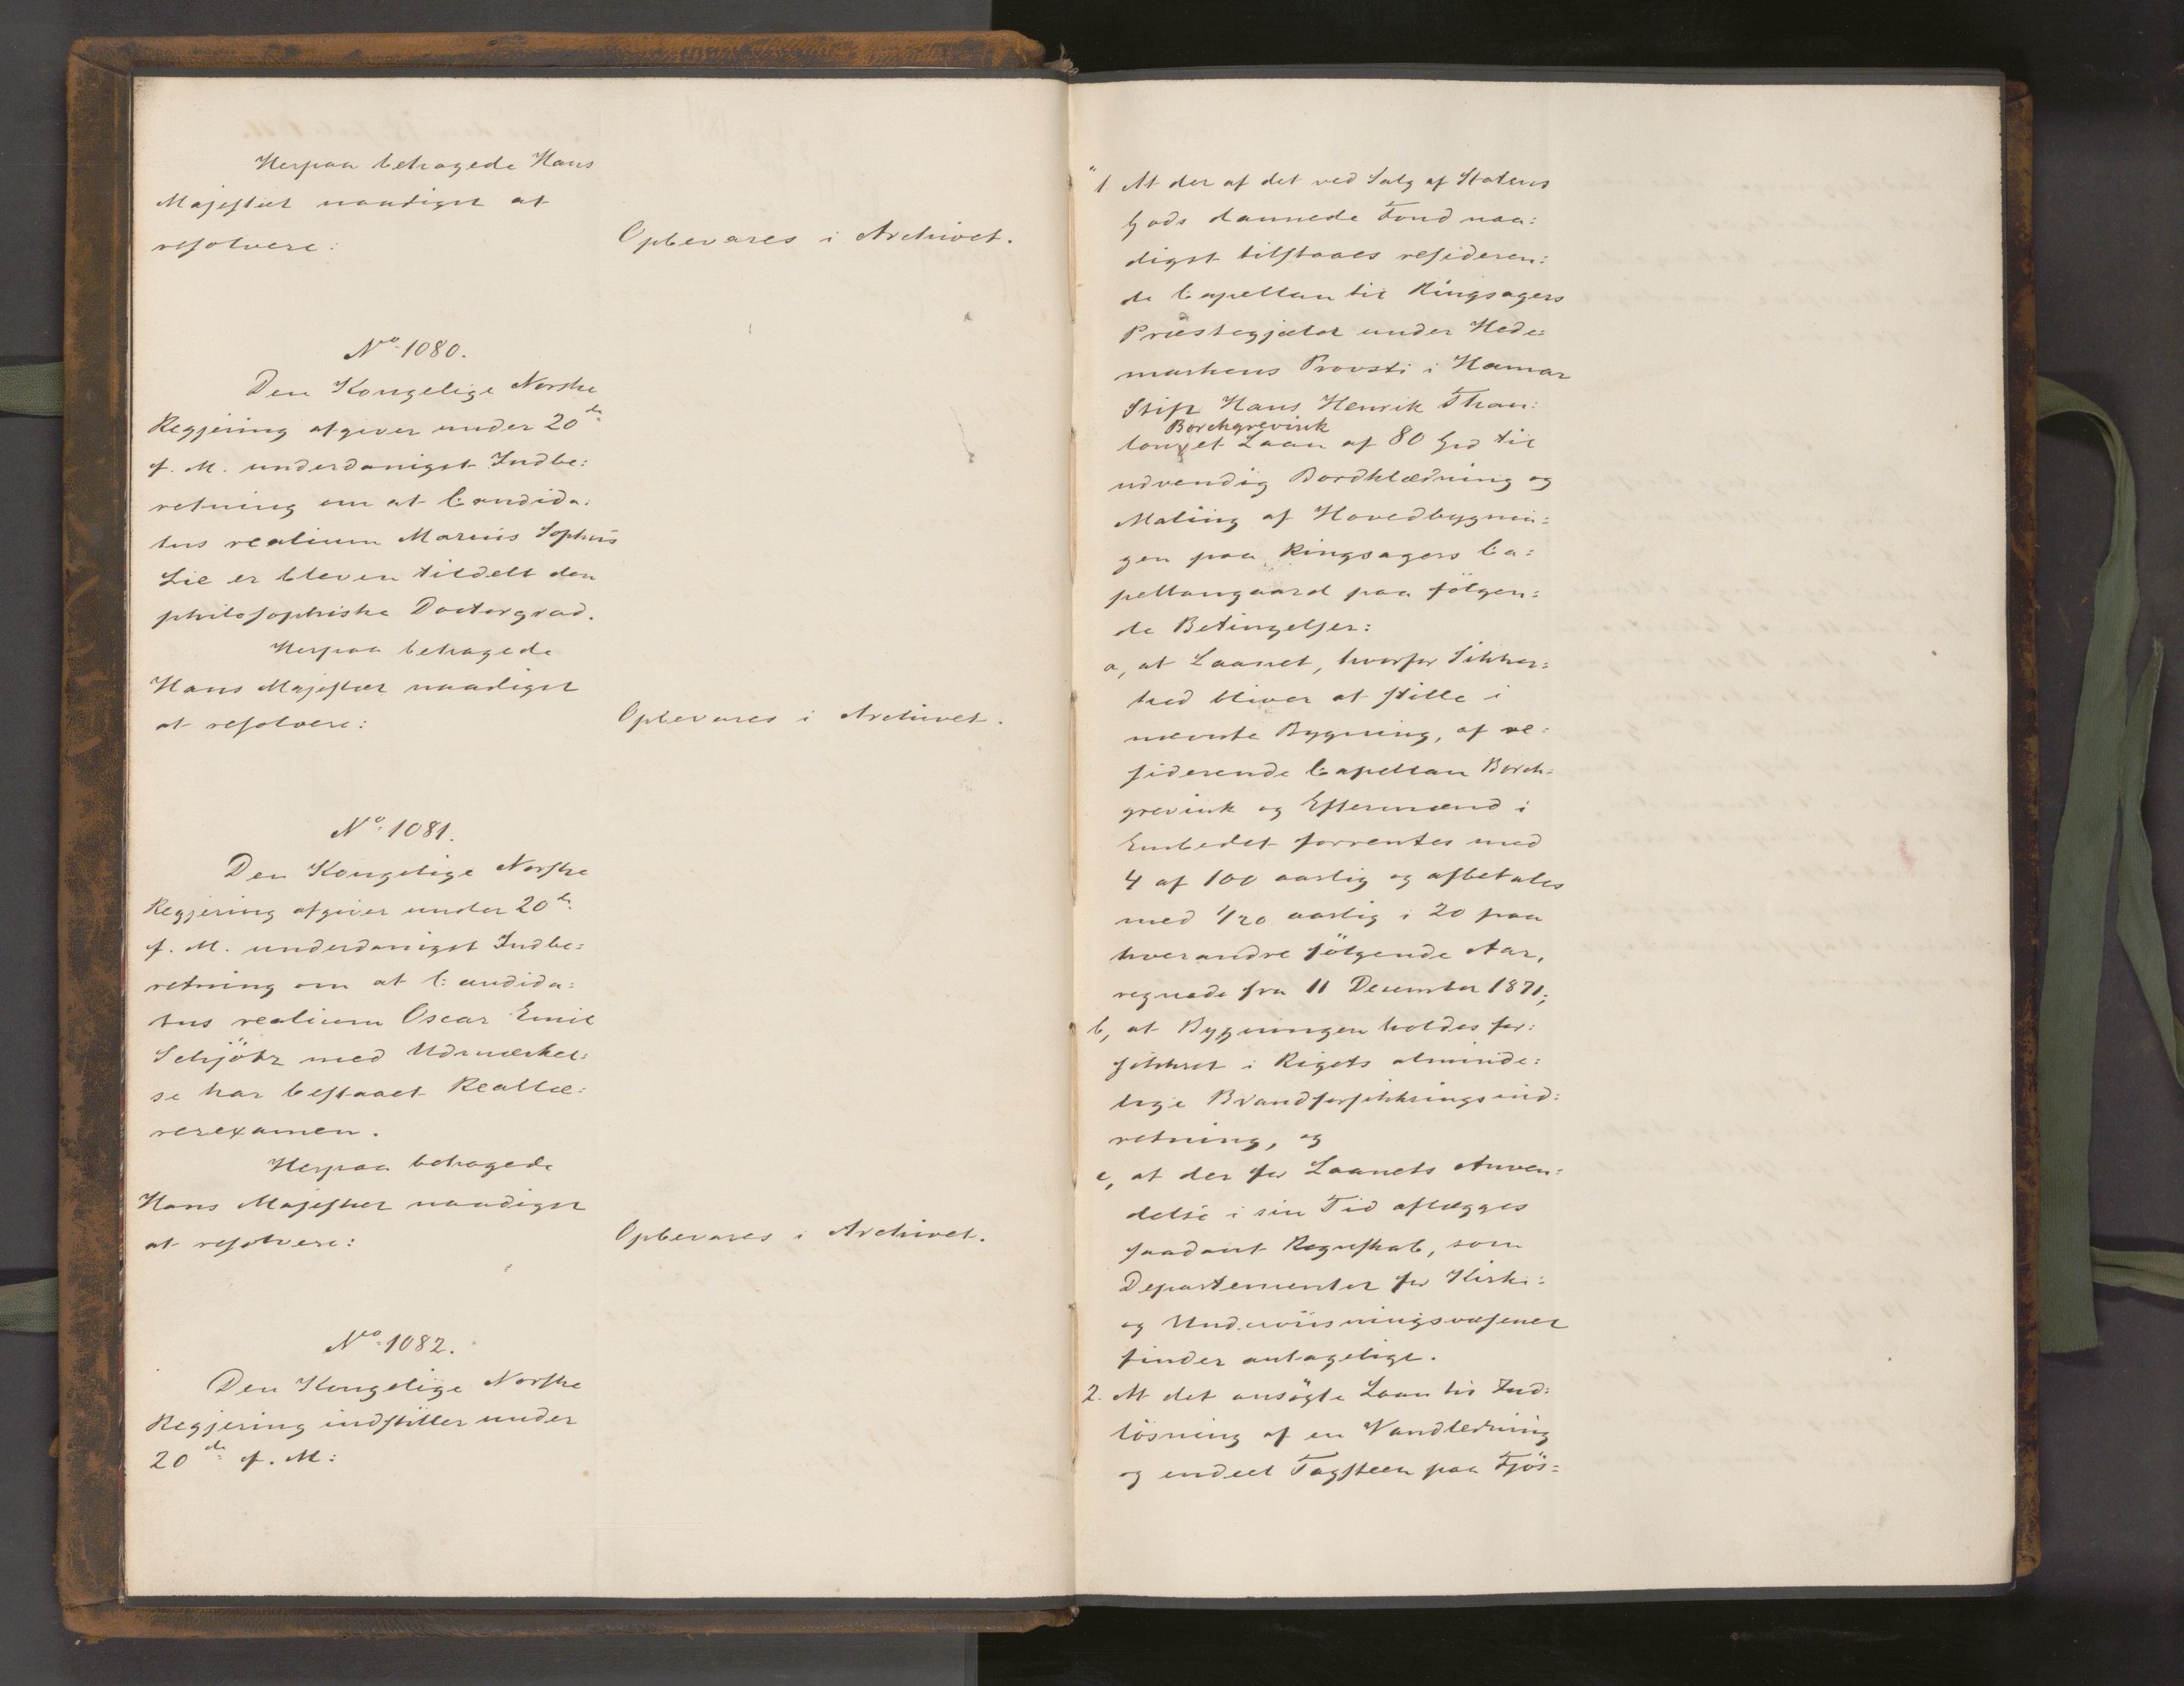 Herpaa behagede Hans
Majestæt naadigst at
resolvere:
Opbevares i Archivet.
No. 1080.
Den Kongelige Norske
Regjering afgiver under 20de
f. M. underdanigst Indbe:
retning om at Candida:
tus realium Marius Sophus
Lie er bleven tildelt den
philosophiske Doctorgrad.
Herpaa behagede
Hans Majestæt naadigst
at resolvere:
Opbevares i Archivet.
No. 1081.
Den Kongelige Norske
Regjering afgiver under 20de
f. M. underdanigst Indbe:
retning om at Candida:
tus realium Oscar Emil
Schjötz med Udmærkel:
se har bestaaet Reallæ:
rerexamen.
Herpaa behagede
Hans Majestæt naadigst
at resolvere:
Opbevares i Archivet.
No. 1082.
Den Kongelige Norske
Regjering indstiller under
20de f. M:
"1. At der af det ved Salg af Statens
Gods dannede Fond naa:
digst tilstaaes resideren:
de Capellan til Ringsagers
Præstegjæld under Hede:
markens Provsti i Hamar
Stift Hans Henrik Than:
Borchgrevink
low et Laan af 80 Spd til
udvendig Bordklædning og
Maling af Hovedbygnin:
gen paa Ringsagers Ca:
pellangaard paa fölgen:
de Betingelser:
a, at Laanet, hvorfor Sikker:
hed bliver at stille i
nævnte Bygning, af re:
siderende Capellan Borch:
grevink og Eftermænd i
Embedet forrentes med
4 af 100 aarlig og afbetales
med 1/20 aarlig i 20 paa
hverandre fölgende Aar,
regnede fra 11 December 1871;
b, at Bygningen holdes for:
sikkret i Rigets alminde:
lige Brandforsikkringsind:
retning, og
c, at der for Laanets Anven:
delse i sin Tid aflægges
saadant Regnskab, som
Departementet for Kirke:
og Underviisningsvæsenet
finder antageligt.
2. At det ansögte Laan til Ind:
lösning af en Vandledning
og endeel Tagsteen paa Fjös: